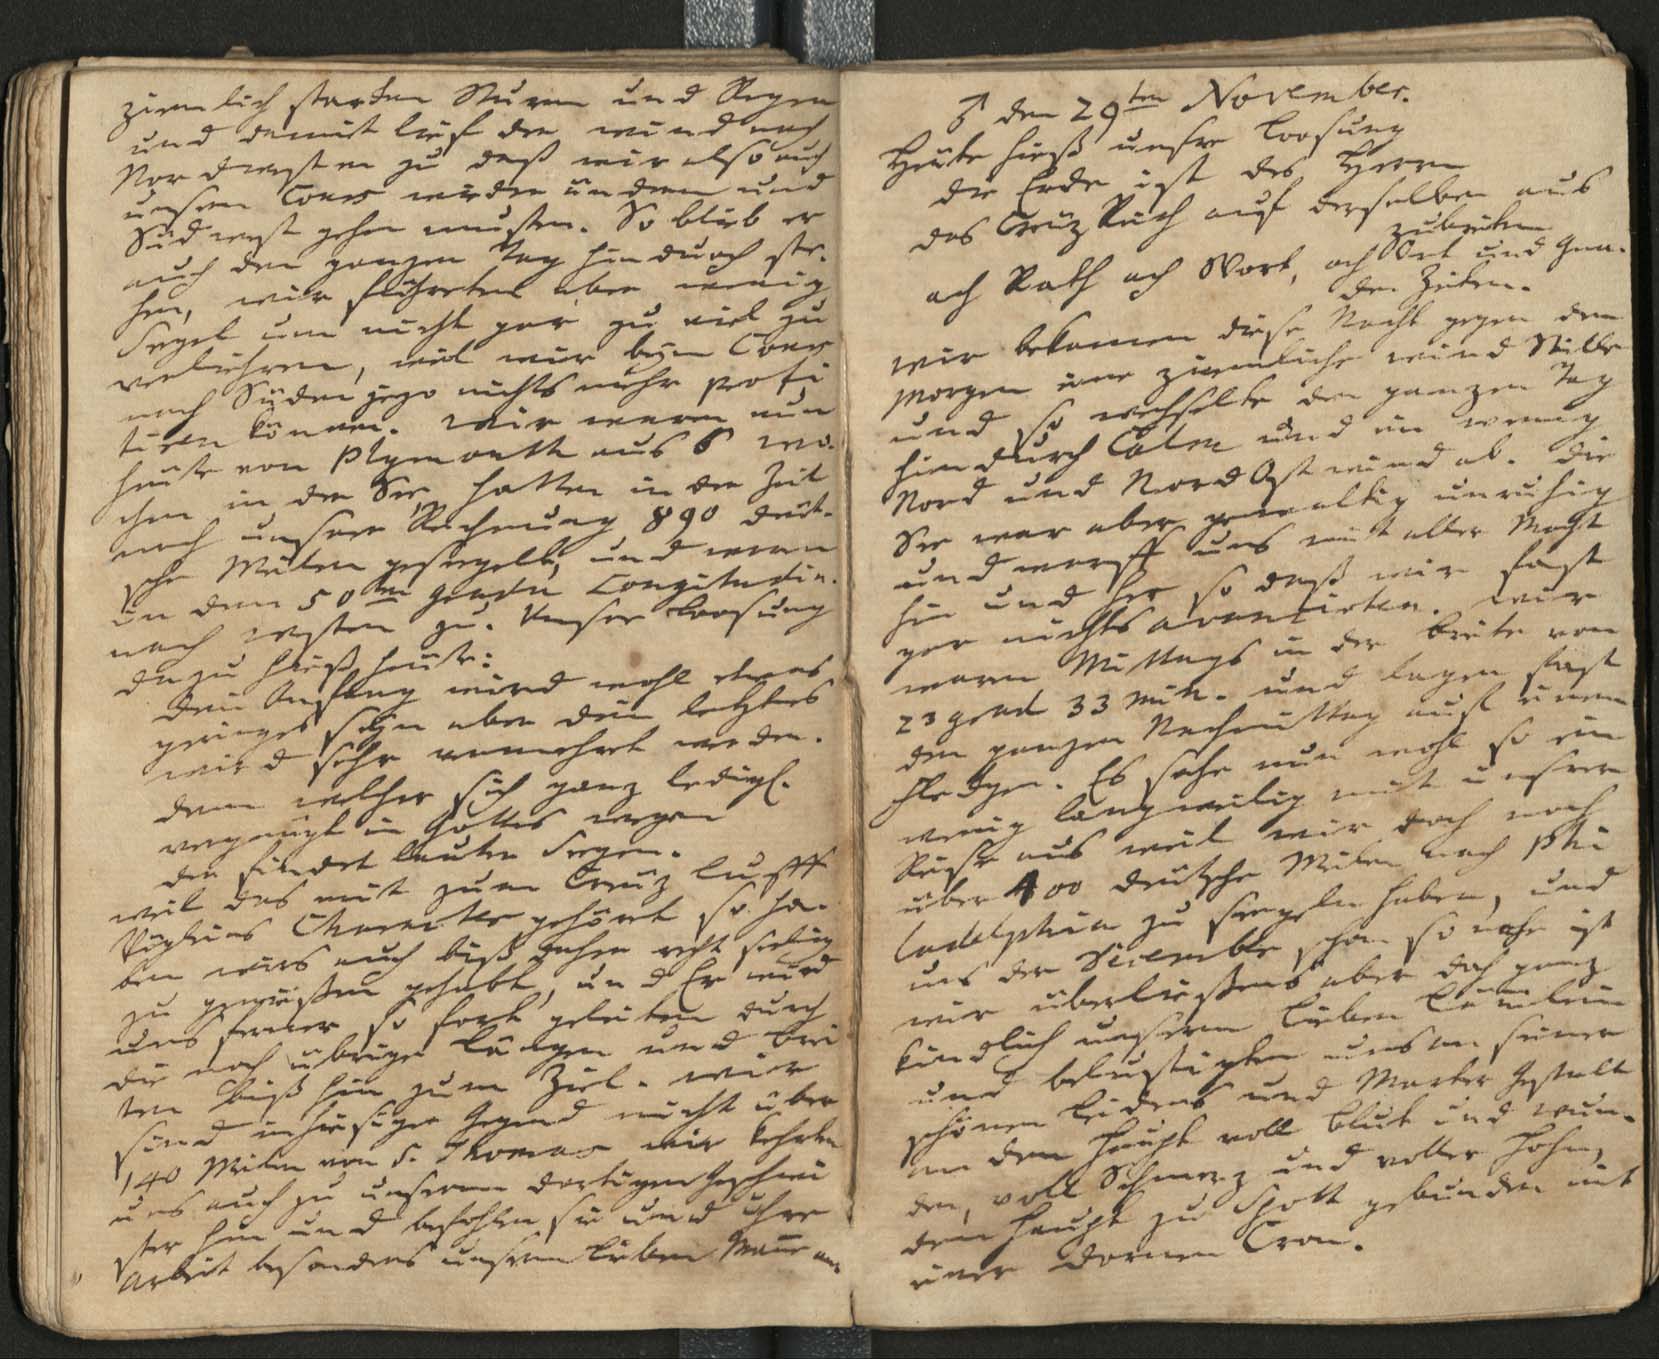 ziemlich starken Sturm und Regen
und damit lief der wind nach
Nordwesten zu daß wir also auch
unsern Cours wieder ändern und
Südwest gehen musten. So blieb er
auch den ganzen Tag hindurch ste-
hen, wir führeten aber wenig
Segel um nicht gar zu viel zu
verliehren, weil wir beym Cours
nach Süden jezo nichts mehr profi
tiren können. Wir waren nun
heute von Plymouth aus 6 wo-
chen in der See, hatten in der Zeit
nach unsrer Rechnung 890 deut-
sche Meilen gesegelt, und waren
in dem 50ten Gradu Longitudin.
nach Westen zu. Unsre Loosung
dazu hieß heute:
Dein Anfang wird wohl etwas
geringes seyn aber dein letztes
wird sehr vermehret werden.
denn welcher sich ganz ledigl.
vergnügt in Gottes wegen
der findet lauter Segen.
weil das mit zum Creuz Lufft
Vögleins Character gehöret so ha-
ben wirs auch biß daher recht seelig
zu genießen gehabt, und Er wird
uns ferner so fort geleiten durch
die noch übrige Längen und Brei
ten biß hin zum Ziel. wir
sind in hiesiger Gegend nicht über
140 Meilen von S. Thomas wir kehrten
uns auch zu unsern dortigen Geschwi
ster hin und befohlen sie und ihre
Arbeit besonders unserm lieben Manne an.
♂ den 29ten November.
Heute hieß unsre Loosung
die Erde ist des Herrn
das Creuz Reich auf derselben aus
zubreiten
ach Rath ach Wort, ach Ort und Gna-
den Zeiten.
Wir bekamen diese Nacht gegen dem
Morgen eine ziemliche wind Stille
und so wechselte den ganzen Tag
hindurch Calm und ein wenig
Nord und NordOst wind ab. die
See war aber gewaltig unruhig
und warff uns mit aller Macht
hin und her so daß wir fast
gar nichts avancirten. Wir
waren Mittags in der Breite von
23 grad 33 Min. und lagen fast
den ganzen Nachmittag auf einem
Fleckgen. Es sahe nun wohl so ein
wenig langweilig mit unsrer
Reise aus weil wir doch noch
über 400 deutsche Meilen nach Phi
ladelphia zu seegeln haben, und
uns der December schon so nahe ist
wir überließens aber doch ganz
kindlich unserm lieben Lämmlein
und belustigten uns an seiner
schönen Leidens und Marter Gestalt
an dem Haupt voll Blut und Wun-
den, voll Schmerz und voller Hohn,
dem Haupt zu Spott gebunden mit
einer dornen Cron.